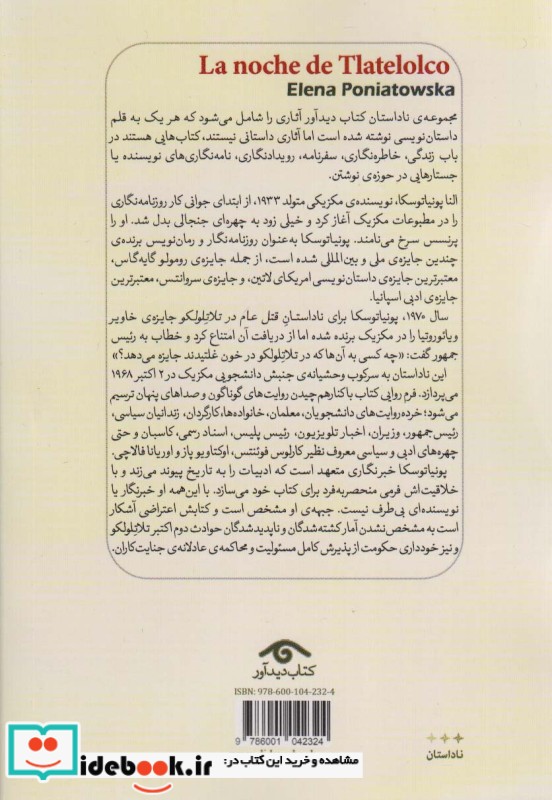 La noche de Tlatelolco
Elena Poniatowska
مجموعه‌ی ناداستان کتاب دیدآور آثاری را شامل می‌شود که هر یک به قلم
داستان‌نویسی نوشته شده است اما آثاری داستانی نیستند، کتاب‌هایی هستند در
باب زندگی، خاطره‌نگاری، سفرنامه، رویدادنگاری، نامه‌نگاری‌های نویسنده یا
جستارهایی در حوزه‌ی نوشتن.
النا پونیاتوسکا، نویسنده‌ی مکزیکی متولد ۱۹۳۳، از ابتدای جوانی کار روزنامه‌نگاری
را در مطبوعات مکزیک آغاز کرد و خیلی زود به چهره‌ای جنجالی بدل شد. او را
پرنسس سرخ می‌نامند. پونیاتوسکا به‌عنوان روزنامه‌نگار و رمان‌نویس برنده‌ی
چندین جایزه‌ی ملی و بین‌المللی شده است، از جمله جایزه‌ی رومولو گایه‌گاس،
معتبرترین جایزه‌ی داستان‌نویسی امریکای لاتین، و جایزه‌ی سروانتس، معتبرترین
جایزه‌ی ادبی اسپانیا.
سال ۱۹۷۰، پونیاتوسکا برای ناداستانِ قتل عام در تلاتلولکو جایزه‌ی خاویر
ویائوروتیا را در مکزیک برنده شده اما از دریافت آن امتناع کرد و خطاب به رئیس
جمهور گفت: «چه کسی به آن‌ها که در تلاتلولکو در خون غلتیدند جایزه می‌دهد؟»
این ناداستان به سرکوب وحشیانه‌ی جنبش دانشجویی مکزیک در ۲ اکتبر ۱۹۶۸
می‌پردازد. فرم روایی کتاب با کنار هم چیدن روایت‌های گوناگون و صداهای پنهان ترسیم
می‌شود؛ خرده‌روایت‌های دانشجویان، معلمان، خانواده‌ها، کارگردان، زندانیان سیاسی،
رئیس‌جمهور، وزیران، اخبار تلویزیون، رئیس پلیس، اسناد رسمی، کاسبان و حتی
چهره‌های ادبی و سیاسی معروف نظیر کارلوس فوئنتس، اوکتاویو پاز و اوریانا فالاچی.
پونیاتوسکا خبرنگاری متعهد است که ادبیات را به تاریخ پیوند می‌زند و با
خلاقیت‌اش فرمی منحصربه‌فرد برای کتاب خود می‌سازد. با این‌همه او خبرنگار یا
نویسنده‌ای بی‌طرف نیست. جبهه‌ی او مشخص است و کتابش اعتراضی آشکار
است به مشخص نشدن آمار کشته‌شدگان و ناپدیدشدگان حوادث دوم اکتبر تلاتلولکو
و نیز خودداری حکومت از پذیرش کامل مسئولیت و محاکمه‌ی عادلانه‌ی جنایت‌کاران.
کتاب دیدآور
ISBN: 978-600-104-232-4
9 786001 042324
ناداستان
مشاهده و خرید این کتاب در:
idebook.ir